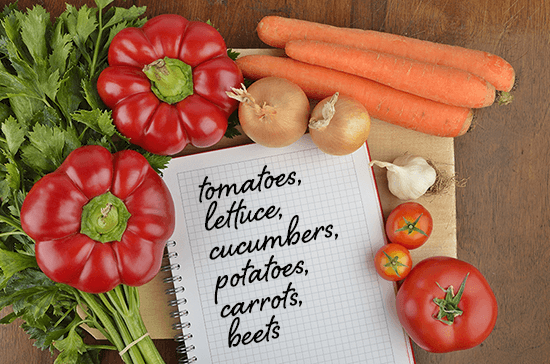 tomatoes,
lettuce,
cucumbers,
potatoes,
carrots,
beets